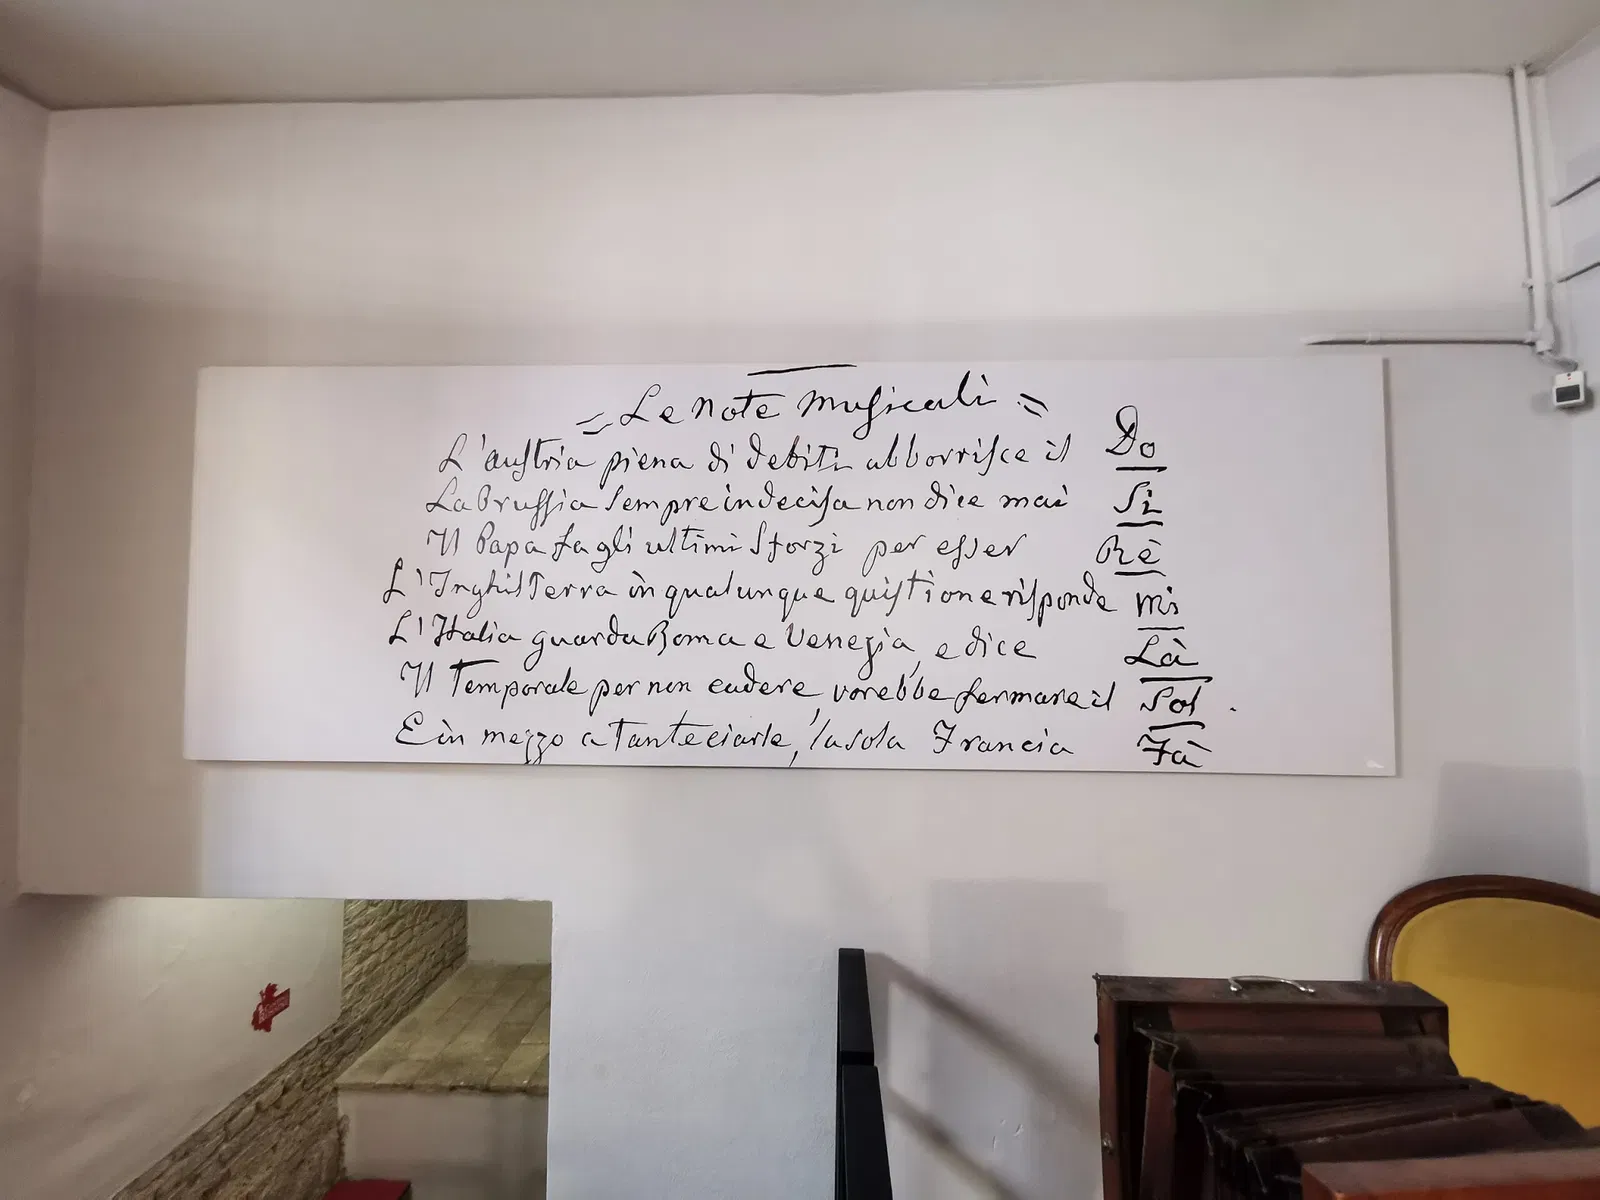 = Le note musicali =
L'austria piena di debiti abborrisce il Do
La Prussia sempre indecisa non dice mai Si
Il Papa fa gli ultimi sforzi per esser Rè
L'Inghilterra in qualunque quistione risponde Mi
L'Italia guarda Roma e Venezia, e dice Là
Il Temporale per non cadere, vorebbe fermare il Sol.
E in mezzo a tante ciarle, la sola Francia Fà